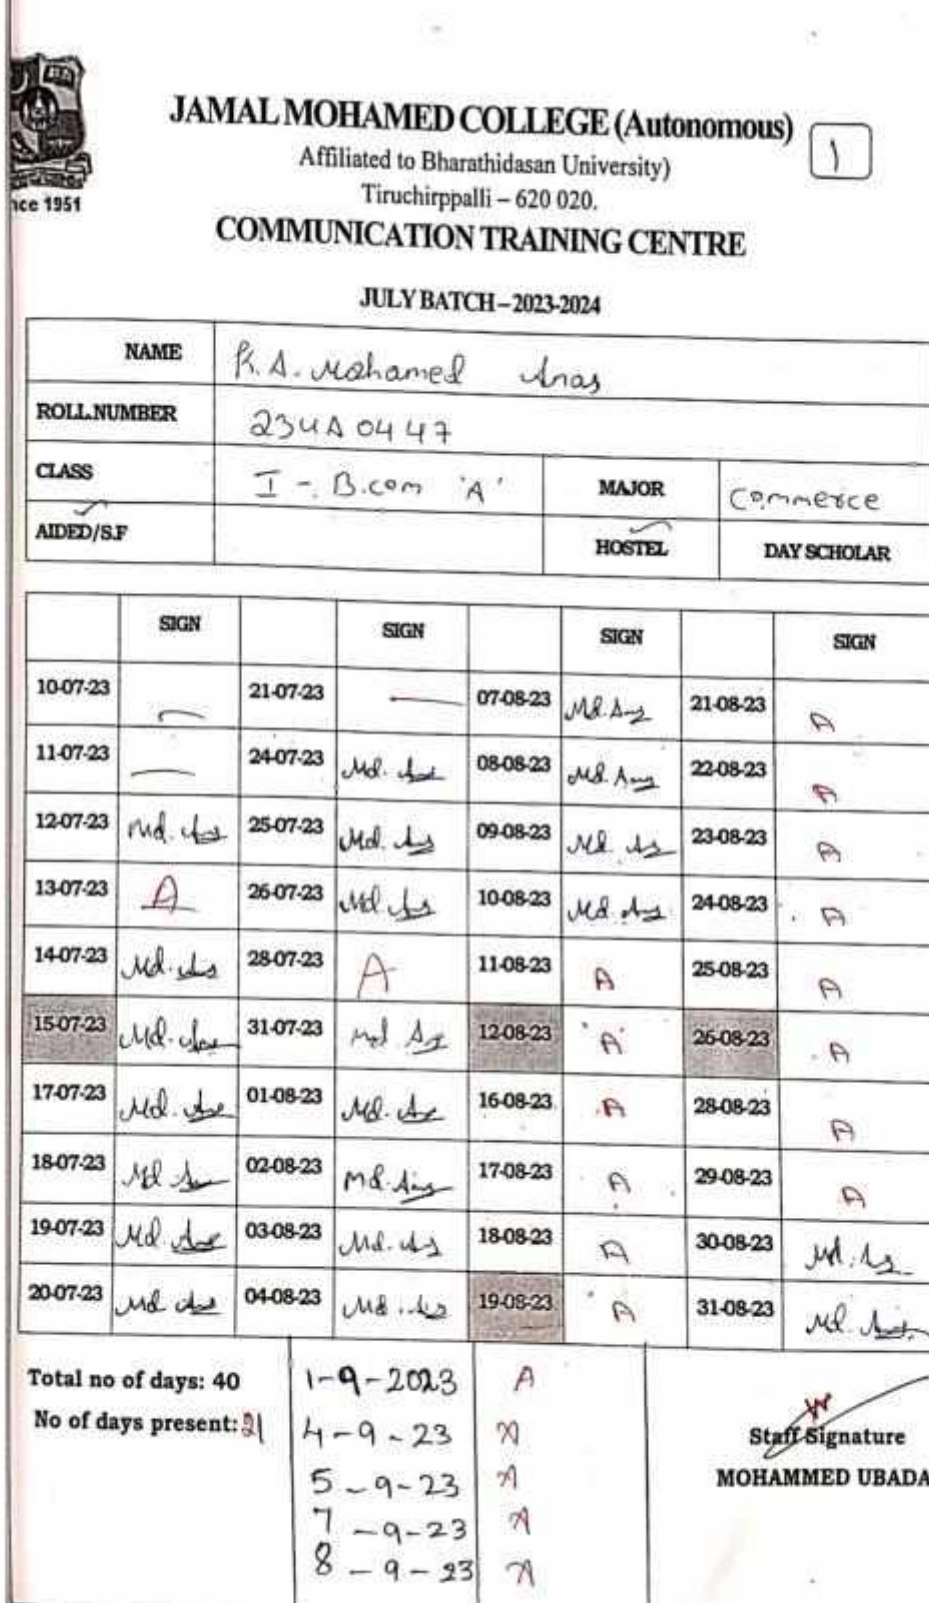 JAMAL MOHAMED COLLEGE (Autonomous)
1
Affiliated to Bharathidasan University)
Tiruchirppalli – 620 020.
nce 1951
COMMUNICATION TRAINING CENTRE
JULY BATCH – 2023-2024
NAME K.A. Mohamed Anas
ROLL.NUMBER 23UA0447
CLASS I - B.com 'A' MAJOR Commerce
AIDED/S.F HOSTEL DAY SCHOLAR
SIGN SIGN SIGN SIGN
10-07-23 — 21-07-23 — 07-08-23 Md. Ans 21-08-23 A
11-07-23 — 24-07-23 Md. Ans 08-08-23 Md. Ans 22-08-23 A
12-07-23 Md. Ans 25-07-23 Md. Ans 09-08-23 Md. Ans 23-08-23 A
13-07-23 A 26-07-23 Md. Ans 10-08-23 Md. Ans 24-08-23 A
14-07-23 Md. Ans 28-07-23 A 11-08-23 A 25-08-23 A
15-07-23 Md. Ans 31-07-23 Md Ans 12-08-23 A 26-08-23 A
17-07-23 Md. Ans 01-08-23 Md. Ans 16-08-23 A 28-08-23 A
18-07-23 Md Ans 02-08-23 Md. Ans 17-08-23 A 29-08-23 A
19-07-23 Md. Ans 03-08-23 Md. Ans 18-08-23 A 30-08-23 Md. Ans
20-07-23 Md Ans 04-08-23 Md. Ans 19-08-23 A 31-08-23 Md. Ans
Total no of days: 40
No of days present: 21
1-9-2023 A
4-9-23 A
5-9-23 A
7-9-23 A
8-9-23 A
Staff Signature
MOHAMMED UBADA